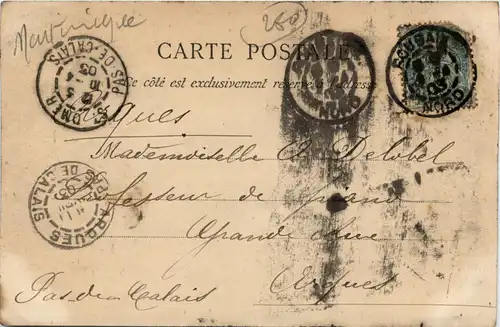 Martinique
250
CARTE POSTALE
Ce côté est exclusivement réservé à l'adresse
ST OMER PAS-DE-CALAIS 03
NORD
ROUBAIX NORD 03
Arques
Mademoiselle Delobel
Professeur de Piano
Grande Rue
Arques
Pas de Calais
ARQUES PAS DE CALAIS 03